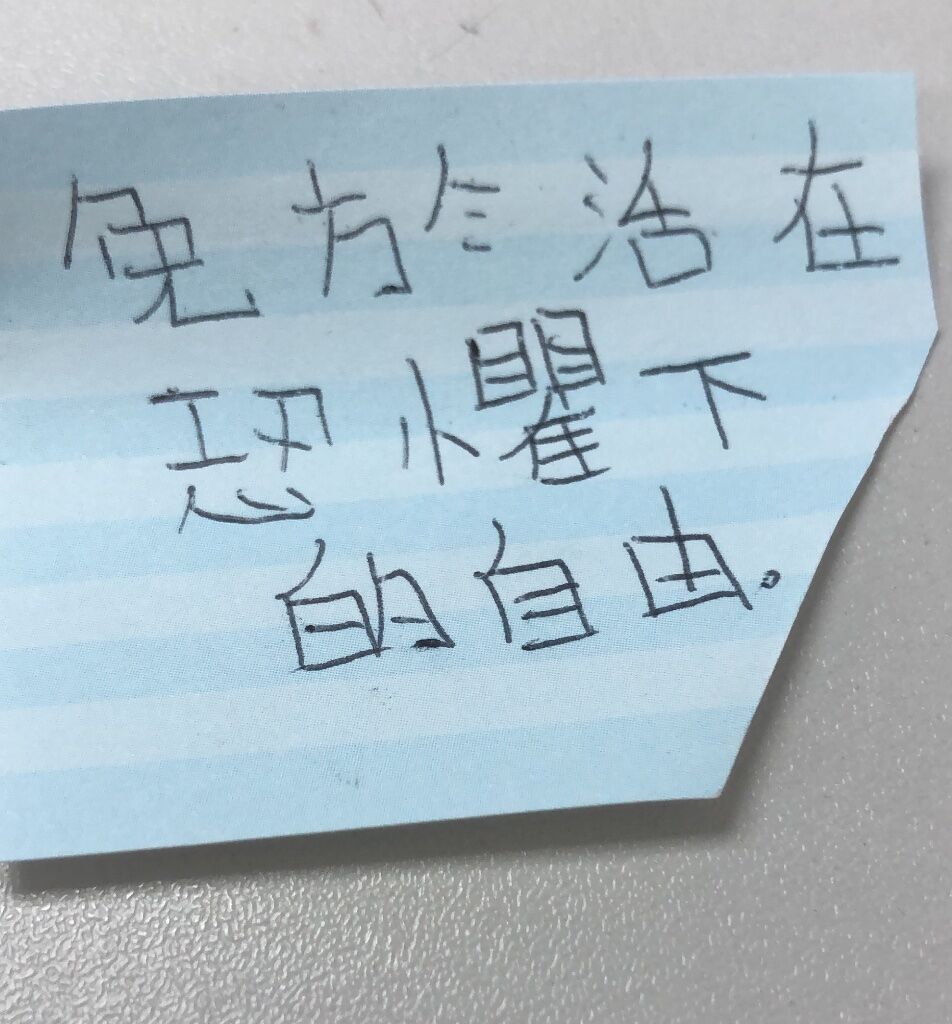 免於活在
恐懼下
的自由。